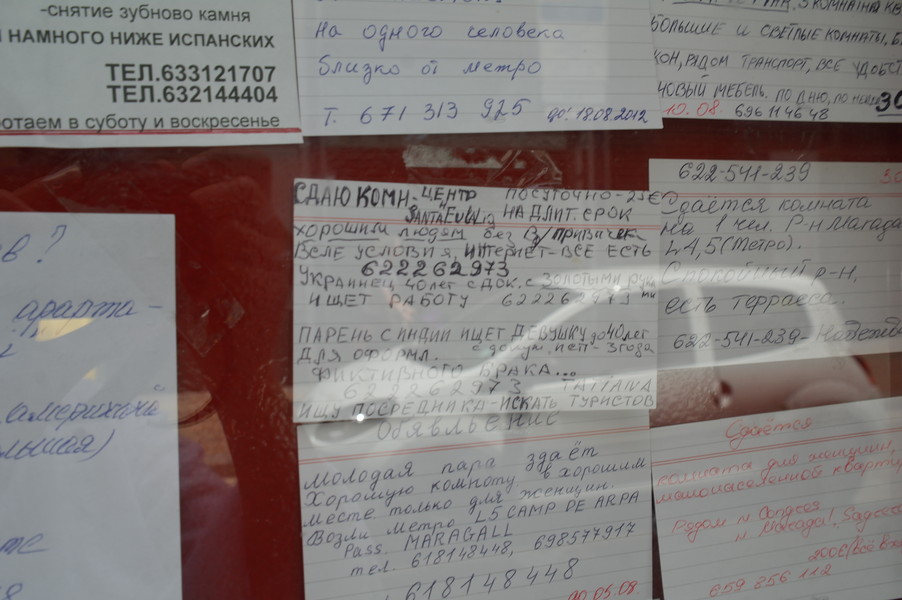 -снятие зубново камня
НАМНОГО НИЖЕ ИСПАНСКИХ
ТЕЛ.633121707
ТЕЛ.632144404
отаем в суботу и воскресенье
на одного человека
близко от метро
Т. 671 313 925 до: 18.08.2012
БОЛЬШИЕ И СВЕТЛЫЕ КОМНАТЫ, Б
КОН, РЯДОМ ТРАНСПОРТ, ВСЕ УДОБСТ
НОВЫЙ МЕБЕЛЬ. ПО ДНЮ,
10.08. 696114648 30
СДАЮ КОМН-ЦЕНТР ПОСУТОЧНО-25€
SANTA EULALIA НА ДЛИТ. СРОК
ХОРОШИМ ЛЮДЯМ БЕЗ В/ПРИВЫЧЕК
ВСЕ УСЛОВИЯ, ИНТЕРНЕТ-ВСЕ ЕСТЬ
622262973
УКРАИНЕЦ 40 ЛЕТ С ДОК. С ЗОЛОТЫМИ РУКАМИ
ИЩЕТ РАБОТУ 622262973
ПАРЕНЬ С ИНДИИ ИЩЕТ ДЕВУШКУ до 40 ЛЕТ
ДЛЯ ОФОРМЛ. с докум. исп-
ФИКТИВНОГО БРАКА...
622262973 TATIANA
ИЩУ ПОСРЕДНИКА-ИСКАТЬ ТУРИСТОВ
622-541-239
Сдаётся комната
на 1 чел. Р-н
L4,5 (Метро).
Спокойный р-н,
есть терраса.
622-541-239-Надежда
в?
аларта-
американ
льшая)
Обявльение
молодая пара здаёт
Хорошую комноту в хорошим
месте только для женщин.
Возли метро L5 CAMP DE ARPA
Pass. MARAGALL
тел. 618148448, 698577917
618148448
до 05.08.
Сдаётся
комната для женщины,
малонаселённой
Рядом м.
659 856 112